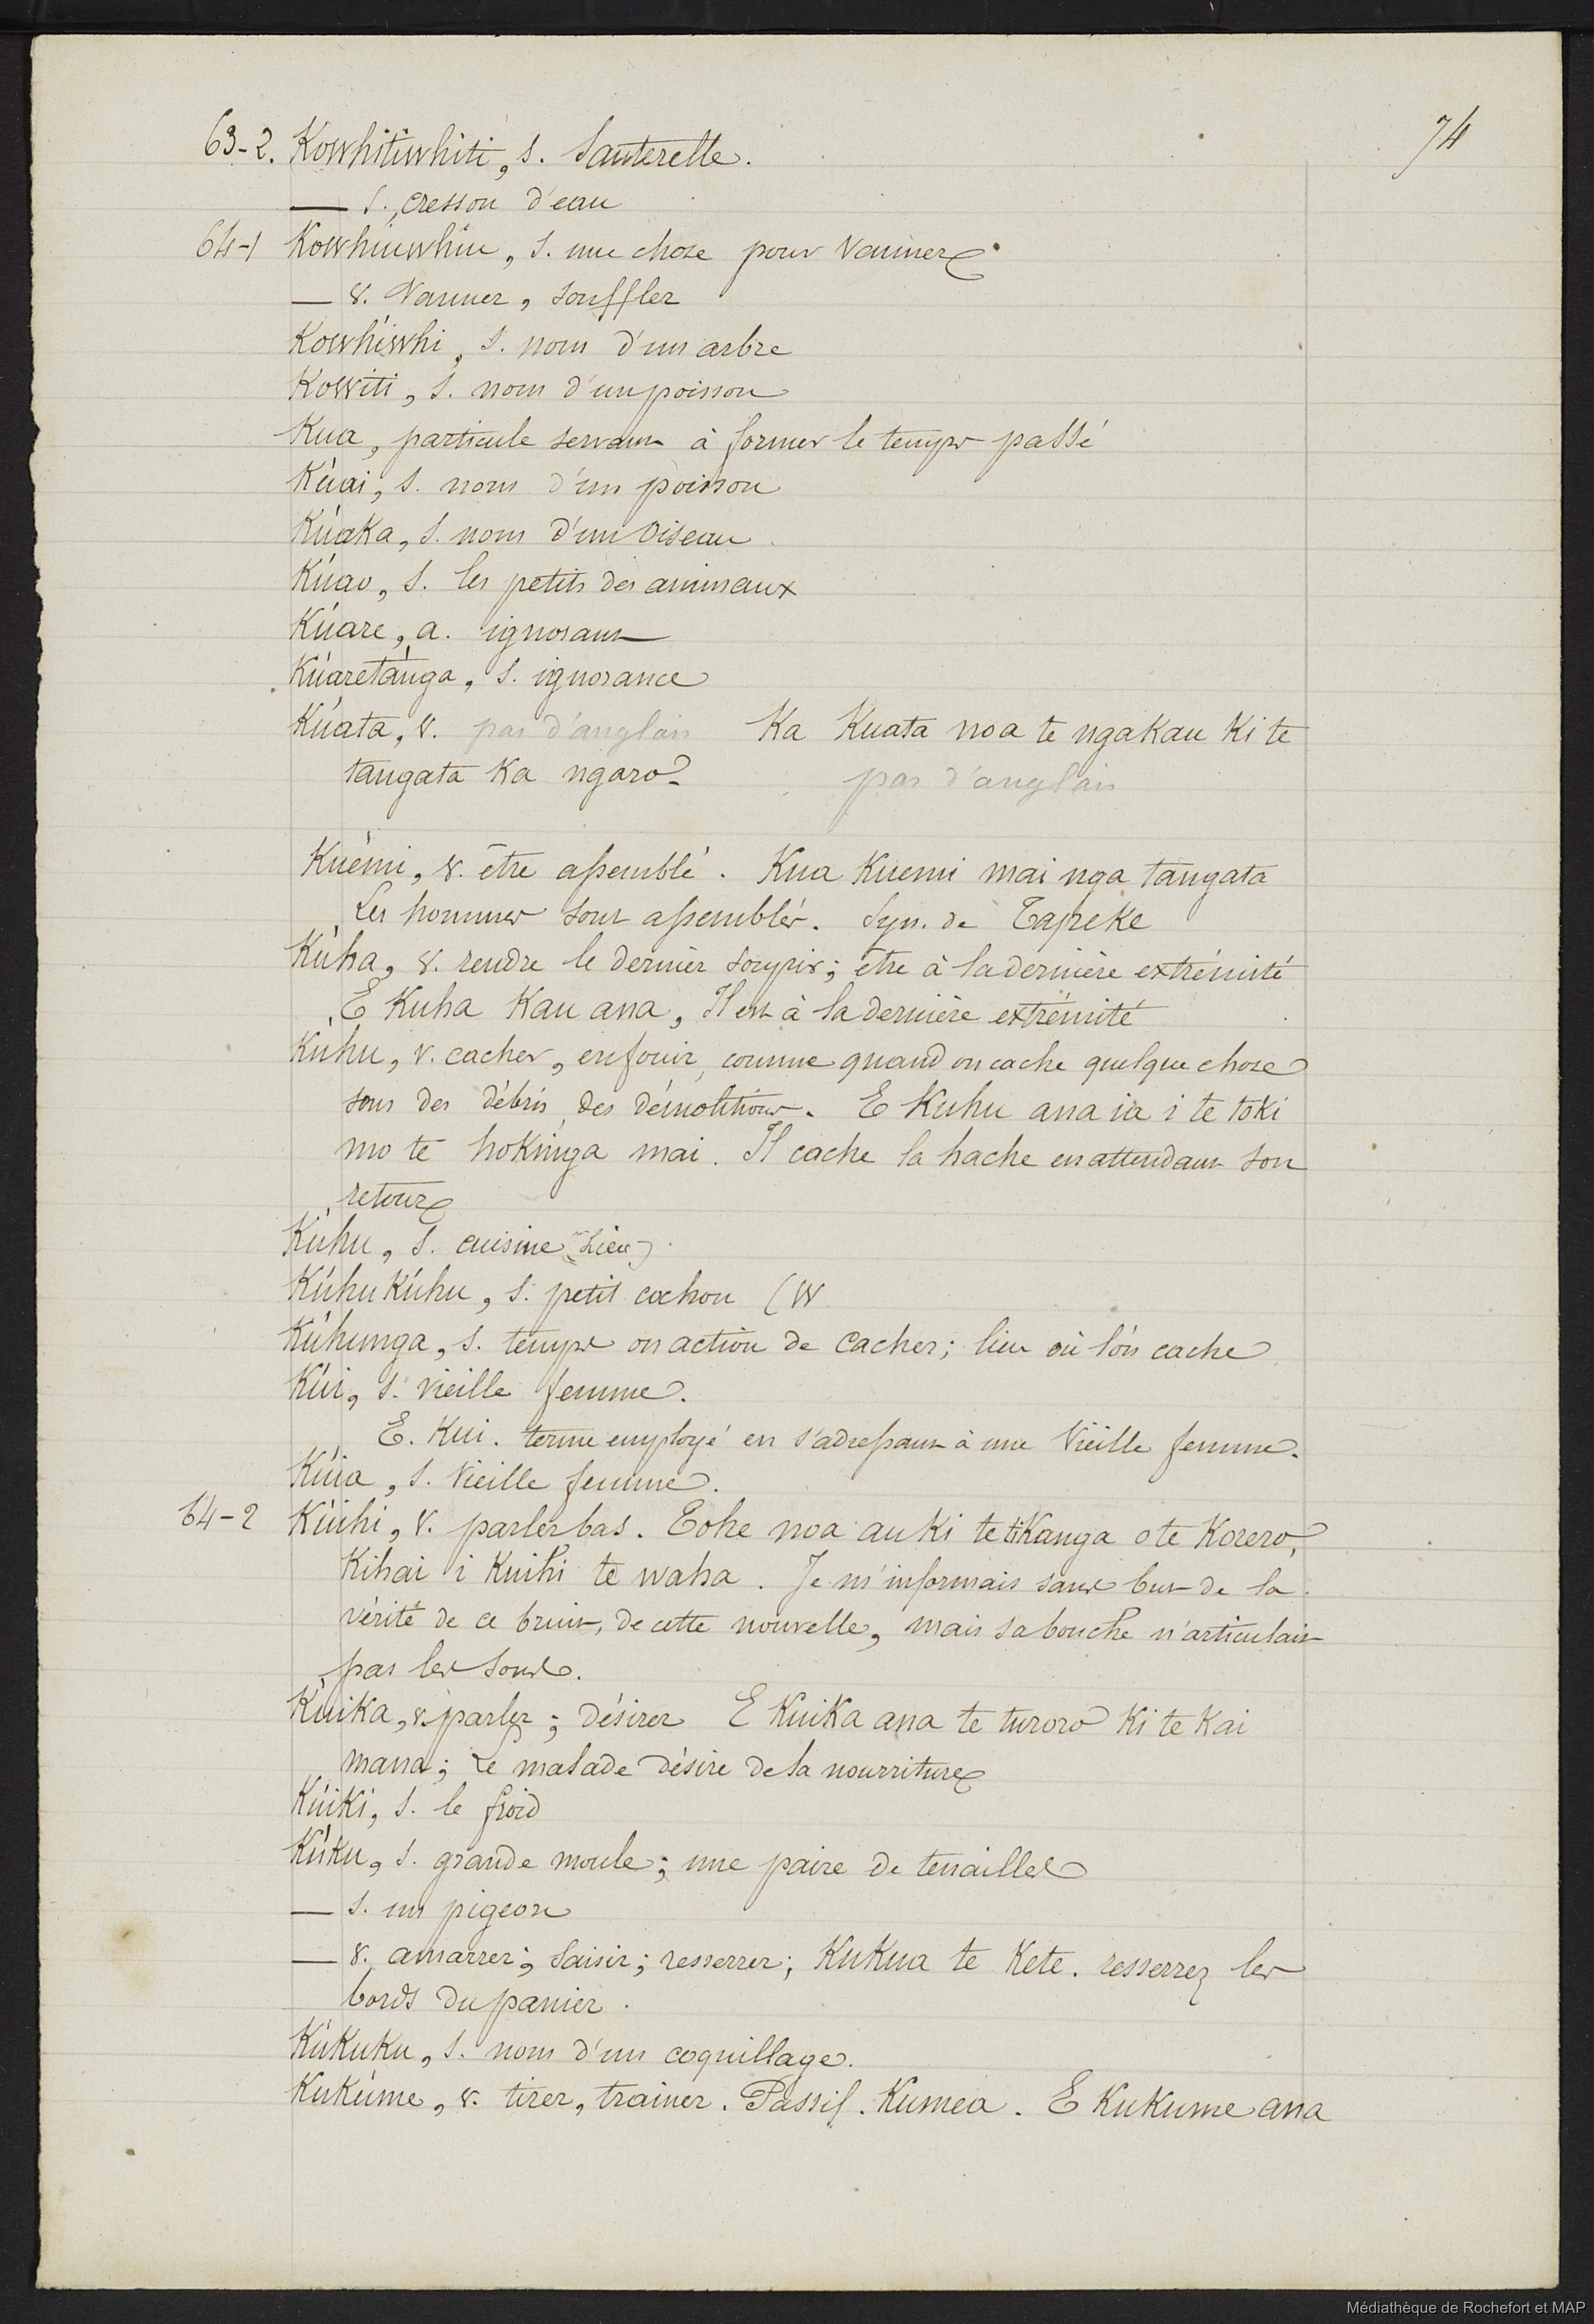 74
63-2. Kowhitiwhiti, s. Sauterelle.
— s., cresson d'eau
64-1 Kowhiuwhiu, s. une chose pour vanner.
— v. Vanner, souffler
Kowhíwhi, s. nom d'un arbre
Kowiti, s. nom d'un poisson
Kua, particule servant à former le temps passé
Kúai, s. nom d'un poisson
Kúaka, s. nom d'un oiseau.
Kúao, s. les petits des animaux
Kúare, a. ignorant
Kúaretánga, s. ignorance
Kúata, v. pas d'anglais Ka Kuata noa te ngakau ki te
tangata ka ngaro.
pas d'anglais
Kuémi, v. être assemblé. Kua Kuemi mai nga tangata
Les hommes sont assemblés. Syn. de Tapeke
Kúha, v. rendre le dernier soupir; être à la dernière extrémité
E Kuha Kau ana, Il est à la dernière extrémité
Kúhu, v. cacher, enfouir, comme quand on cache quelque chose
sous des débris, des démolitions. E Kuhu ana ia i te toki
mo te hokinga mai. Il cache la hache en attendant son
retour
Kúhu, s. cuisine (Lieu).
Kúhukúhu, s. petit cochon (W
Kúhunga, s. temps ou action de cacher; lieu où l'on cache
Kúi, s. vieille femme.
E. Kui. terme employé en s'adressant à une Vieille femme.
Kúia, s. Vieille femme.
64-2 Kúihi, v. parler bas. Eohe noa au ki te tikanga o te Korero,
Kihai i Kuihi te waha. Je m'informais sans but de la
vérité de ce bruit, de cette nouvelle, mais sa bouche n'articulait
pas les sons.
Kúika, v. parler; désirer E Kuika ana te turoro ki te Kai
mana; Le malade désire de la nourriture
Kúiki, s. le froid
Kúku, s. grande moule; une paire de tenailles
— s. un pigeon
— v. amarrer; saisir; resserrer; Kukua te Kete. resserrez les
bords du panier.
Kúkuku, s. nom d'un coquillage.
Kukúme, v. tirer, trainer. Passif. Kumea. E Kukume ana
Médiathèque de Rochefort et MAP